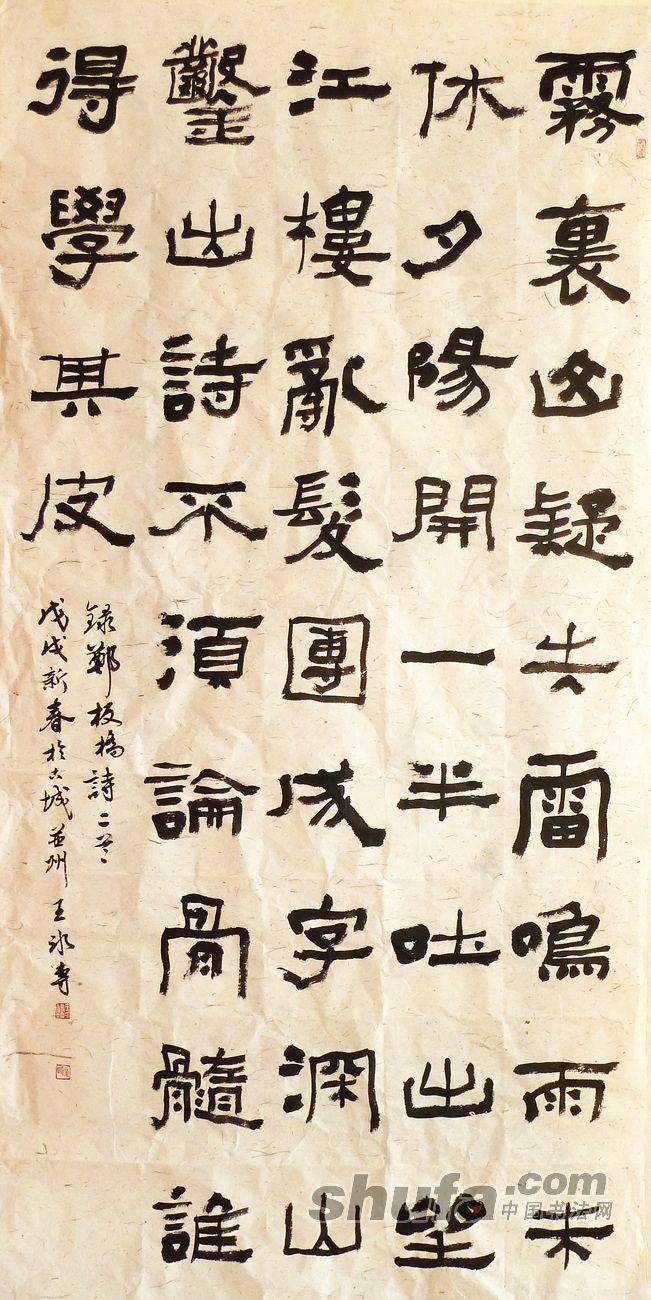 霧裏山疑失雷鳴雨未
休夕陽開一半吐出望
江樓亂髮團成字深山
鑿出詩不須論骨髓誰
得學其皮
錄鄭板橋詩二首
戊戌新春於古城並州王
shufa.com
中国书法网